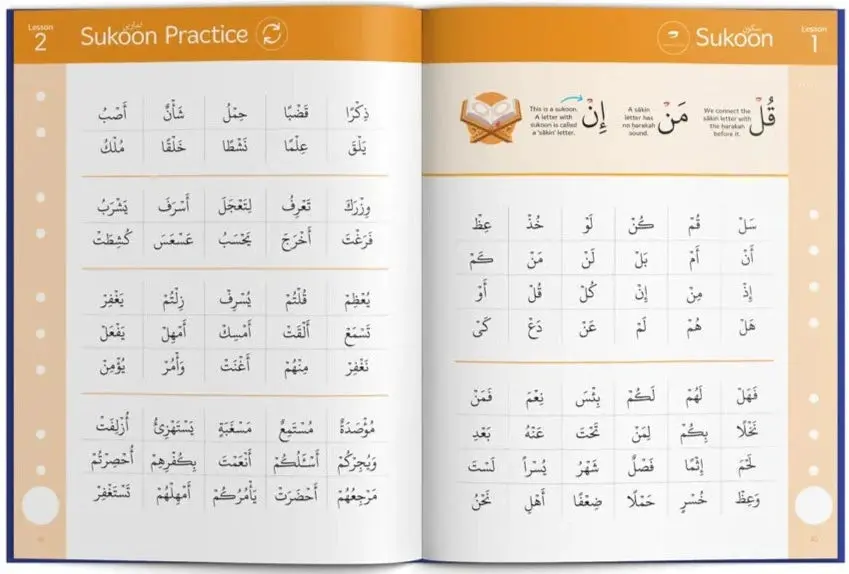 Lesson 1
سكون
Sukoon
قُلْ
We connect the
sākin letter with
the ḥarakah
before it.
مَنْ
A sākin
letter has
no ḥarakah
sound.
إِنْ
This is a sukoon.
A letter with
sukoon is called
a 'sākin' letter.
سَلْ قُمْ كُنْ لَوْ خُذْ عِظْ
أَنْ أَمْ بَلْ لَنْ مَنْ كَمْ
إِذْ مِنْ إِنْ كُلْ قُلْ أَوْ
هَلْ هُمْ لَمْ عَنْ دَعْ كَىْ
فَهَلْ لَهُمْ لَكُمْ بِئْسَ نِعْمَ فَمَنْ
نَخْلًا بِكُمْ لِمَنْ تَحْتَ عَنْهُ بَعْدِ
لَحْمَ إِثْمًا فَصْلٌ شَهْرُ يُسْراً لَسْتَ
وَعِظْ خُسْرٍ حَمْلًا ضِعْفًا أَهْلِ نَحْنُ
Lesson 2
Sukoon Practice
ذِكْرًا قَضْبًا حِمْلُ شَأْنٌ أَصْبُ
يَلْقَ عِلْمًا نَشْطًا خَلْقًا مُلْكُ
وِزْرَكَ تَعْرِفُ لِتَعْجَلَ أَسْرَفَ يَشْرَبُ
فَرَغْتَ أَخْرَجَ يَحْسَبُ عَسْعَسَ كُشِطَتْ
يُعْظِمْ قُلْتُمْ يُسْرِفْ زِلْتُمْ يَغْفِرْ
تَسْمَعْ أَلْقَتْ أَمْسِكْ أَمْهِلْ يَفْعَلْ
نَغْفِرْ مِنْهُمْ أَغْنَتْ وَأْمُرْ يُؤْمِنْ
مُؤْصَدَةٌ مُسْتَمِعٌ مَسْغَبَةٍ يَسْتَهْزِئُ أُزْلِفَتْ
وَيُجِرْكُمْ أَسْـَٔلُكُمْ أَنْعَمْتَ بِكُفْرِهِمْ أُحْصِرْتُمْ
مَرْجِعُهُمْ أَحْضَرَتْ يَأْمُرُكُمْ أَمْهِلْهُمْ تَسْتَغْفِرْ